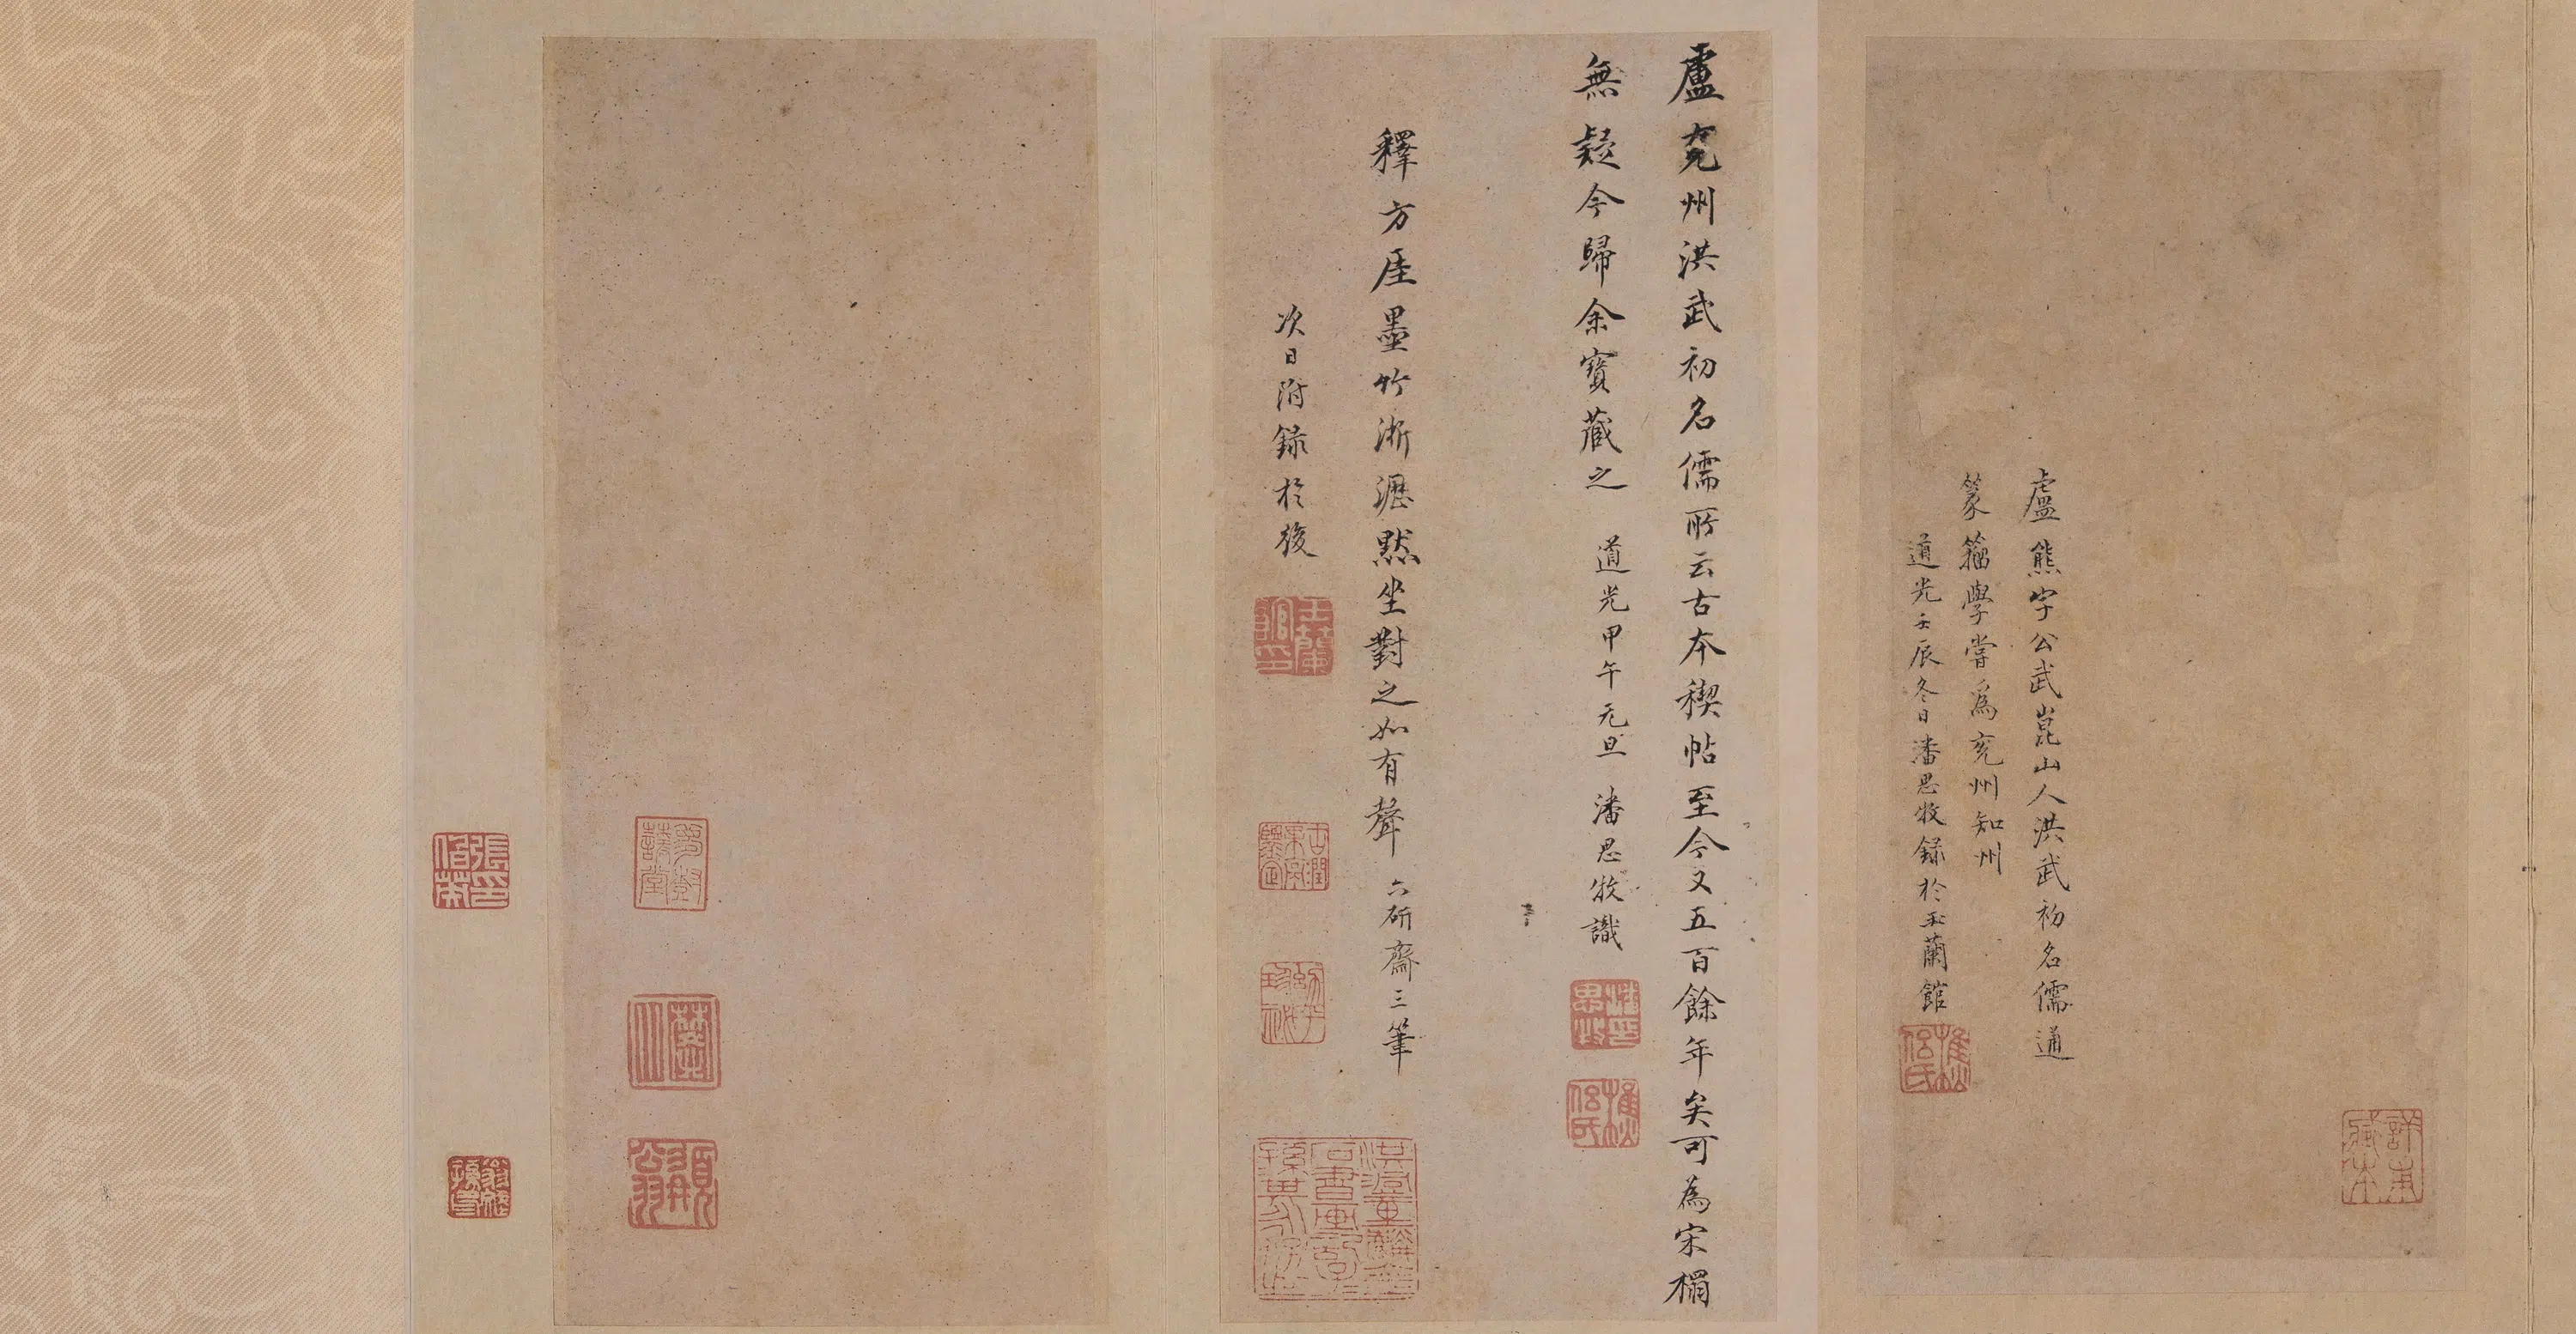 盧熊字公武崑山人洪武初名儒通
篆籀學嘗爲兖州知州
道光壬辰冬日潘思牧録於玉蘭館
盧兖州洪武初名儒所云古本稧帖至今又五百餘年矣可為宋榻
無疑今歸余寳藏之 道光甲午元旦 潘思牧識
釋方厓墨竹淅瀝然坐對之如有聲 六硏齋三筆
次日附録於後